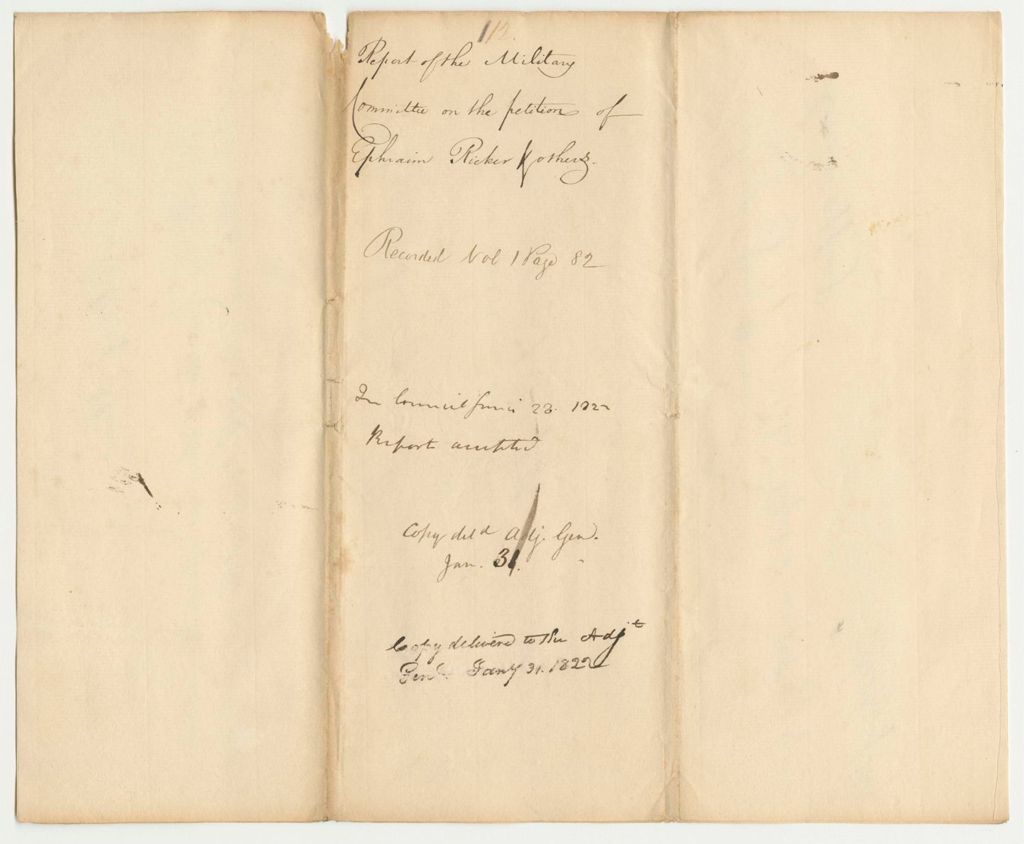 112
Report of the Military
Committee on the petition of
Ephraim Ricker & others.
Recorded Vol 1 Page 82
In Council 23. 1822
Report accepted
Copy deld Adj. Gen.
Jan. 31.
Copy delivered to the Adjt
Genl Jany 31. 1822